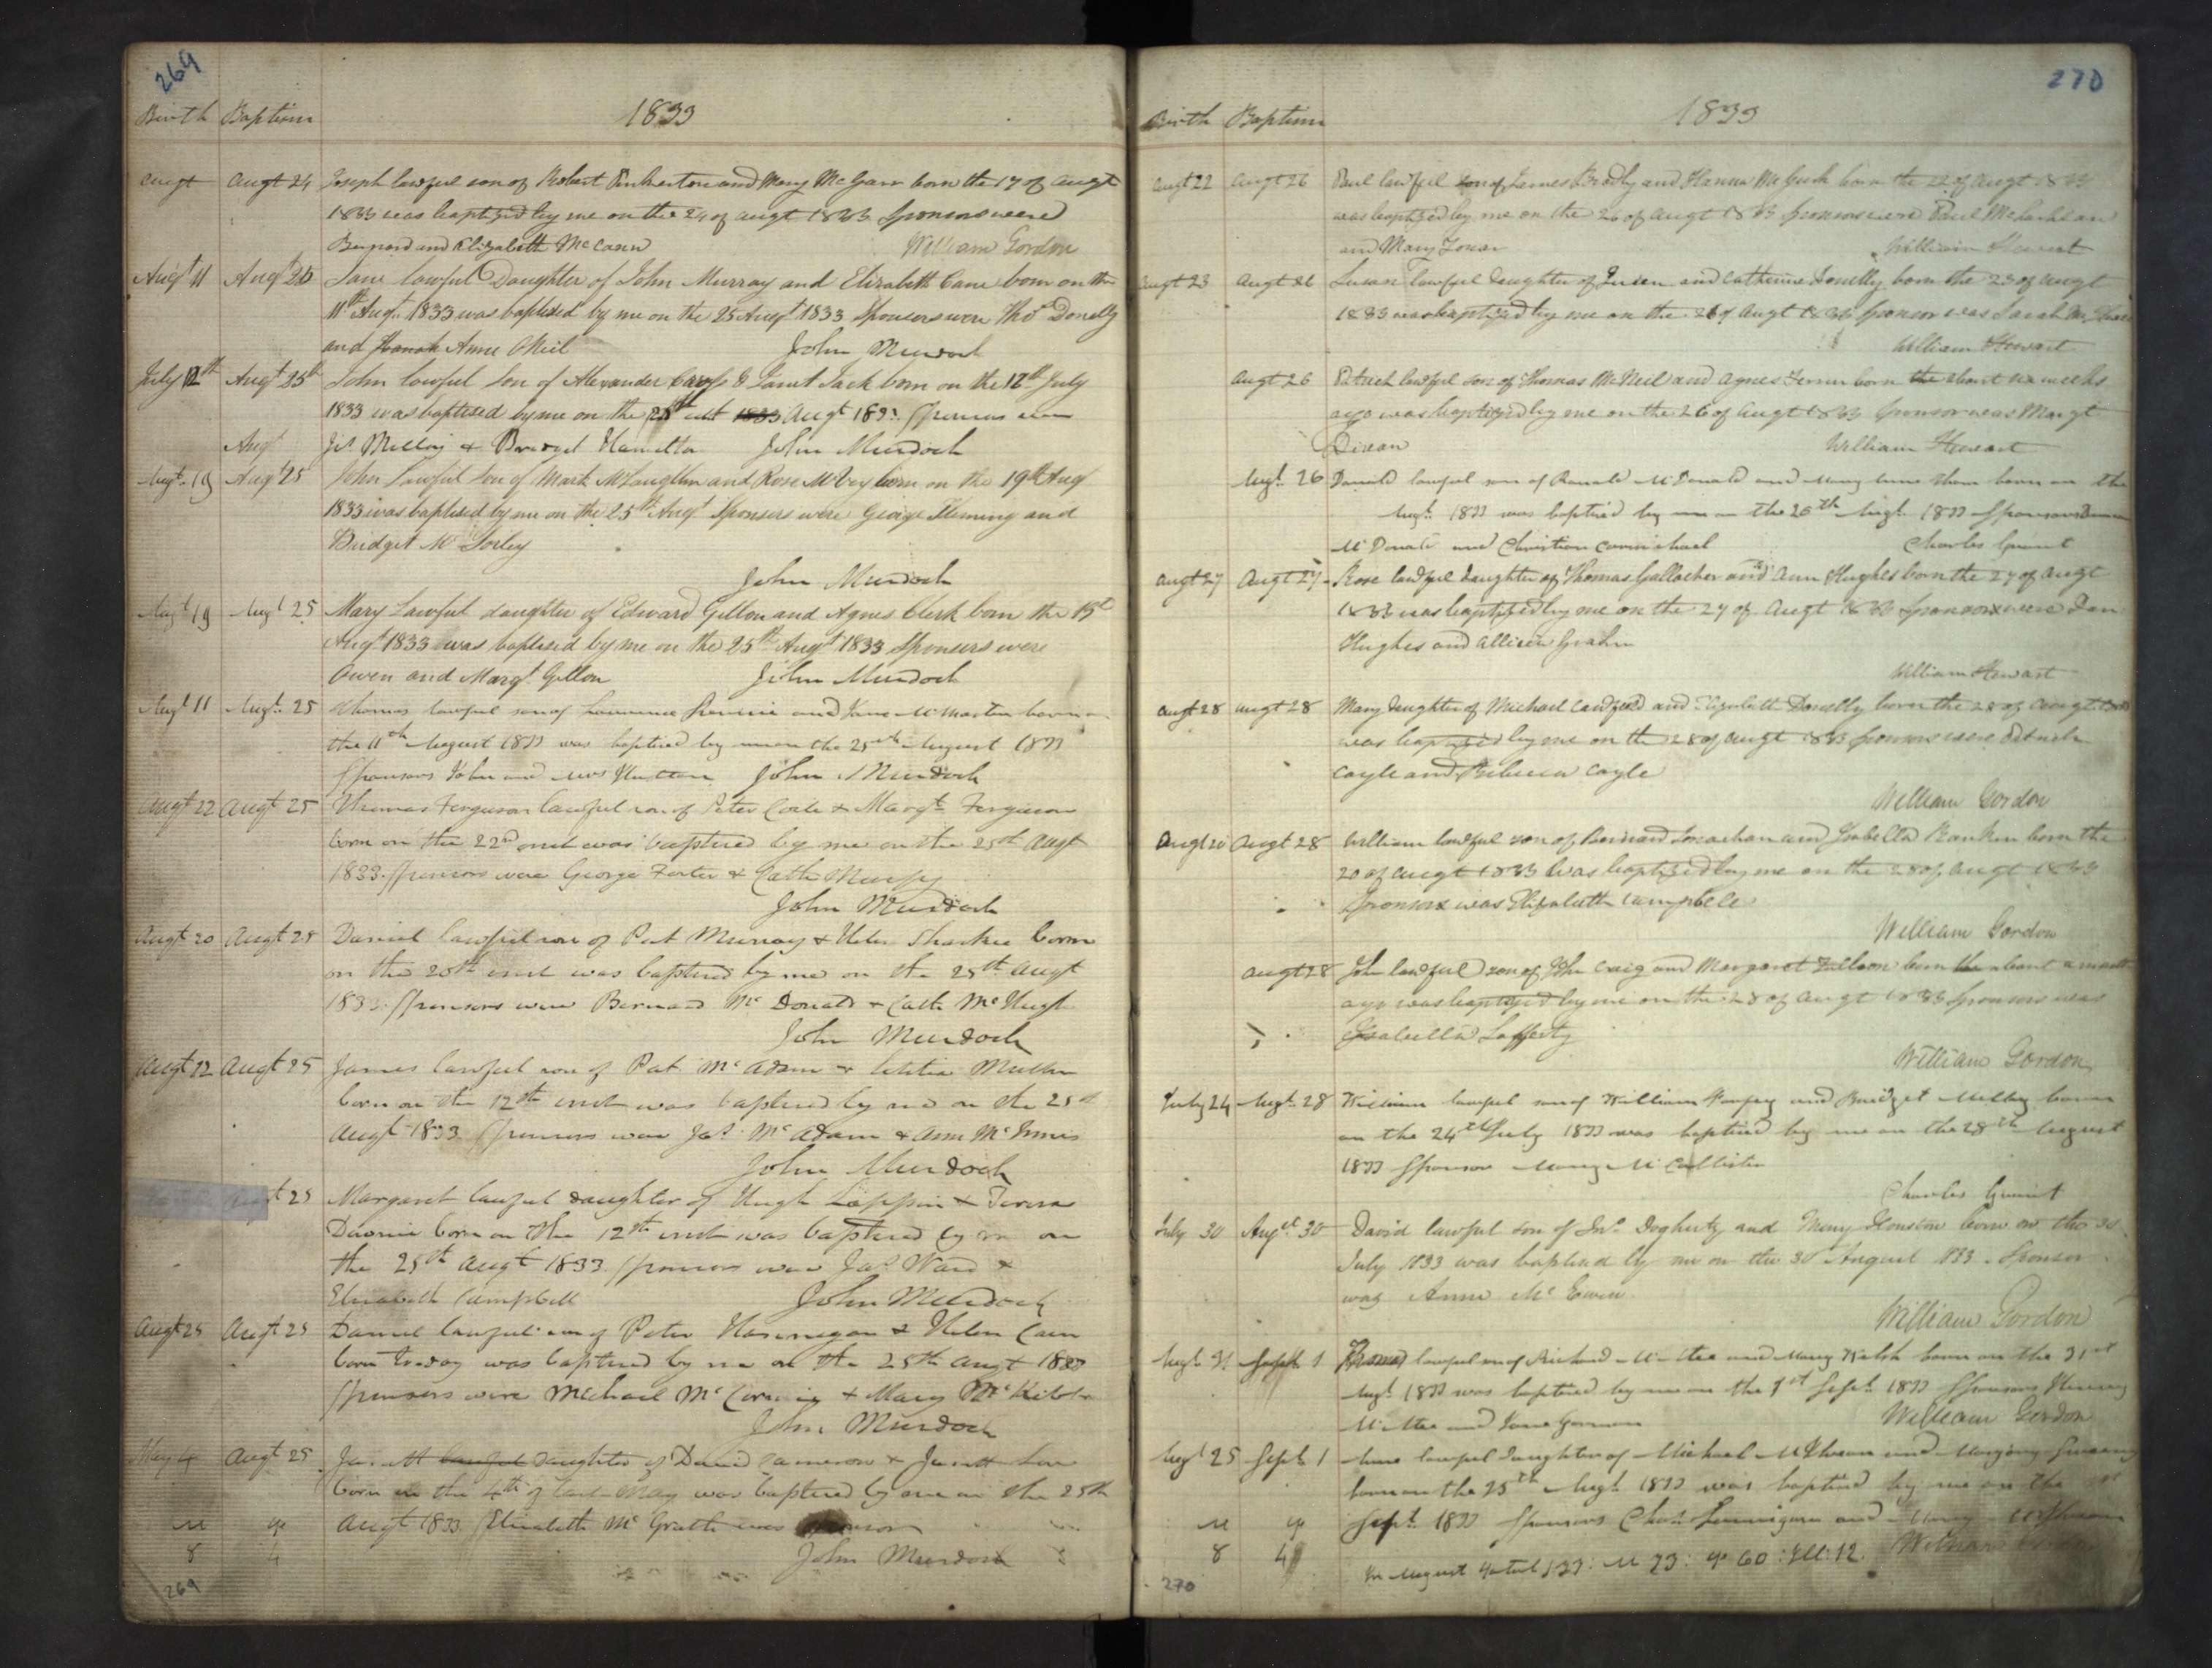 269
Birth Baptism 1833
Augt Augt 24 Joseph lawful son of Robert Pinkerton and Mary McGarr born the 17 of Augt
1833 was baptized by me on the 24 of augt 1833 Sponsors were
Bernard and Elizabeth McCann William Gordon
Augt 11 Augt 25 Jane lawful Daughter of John Murray and Elizabeth Cane born on the
11th Augt. 1833 was baptised by me on the 25 Augt 1833 Sponsers were Thos Donelly
and Hanah Anne ONeil John Murdoch
July 12th Augt 25th John lawful Son of Alexander & Janet Jack born on the 12th July
1833 was baptised by me on the 25th 1833 Augt 1833 Sponsors were
Augt Js Melloy & Bridget Hamilton John Murdoch
Augt 19 Augt 25 John Lawful Son of Mark McLauglin and Rose McVey born on the 19th Aug
1833 was baptised by me on the 25th Augt. Sponsers were George Fleming and
Bridget McSorley
John Murdoch
Augt 19 Augt 25 Mary Lawful daughter of Edward Gillon and Agnes Clerk born the
Augt 1833 was baptised by me on the 25th Augt 1833 Sponsers were
Owen and Margt. Gillon John Murdoch
Augt 11 Augt. 25 Thomas lawful son of Lawrence Rennie and Jane McMartin born on
the 11th August 1833 was baptised by me on the 25th August 1833
Sponsors John and Hutton John Murdoch
Augt 22 Augt 25 Thomas Ferguson lawful son of Peter Coile & Margt. Ferguson
born on the 22nd inst was baptised by me on the 25th Augt
1833. Sponsors were George Foster & Cath Murphy
John Murdoch
Augt 20 Augt 25 Daniel lawful son of Pat Murray & Helen Sharkie born
on the 20th inst was baptised by me on the 25th Augt
1833. Sponsors were Bernard McDonald & Cath McHugh
John Murdoch
Augt 12 Augt 25 James lawful son of Pat McAdam & Letitia Mullen
born on the 12th inst was baptised by me on the 25th
Augt 1833 Sponsors were Jas. McAdam & Ann McInnes
John Murdoch
Augt 25 Margaret lawful daughter of Hugh Lappin & Teresa
Downie born on the 12th inst was baptised by me on
the 25th Augt 1833 Sponsors were Jas. Ward &
Elizabeth Campbell John Murdoch
Augt 25 Augt 25 Daniel lawful son of Peter & Helen Cain
born today was baptised by me on the 25th Augt 1833
Sponsors were Michael McCormig & Mary
John Murdoch
May 4 Augt 25 Janett lawful daughter of David Cameron & Janett
born on the 4th of last May was baptised by me on the 25th
M Augt 1833 Elizabeth McGrath was Sponsor
8 4 John Murdoch
269
270
Birth Baptism 1833
Augt 22 Augt 26 Paul lawful son of James Bradly and Hanna McGurk born the 22 of Augt 1833
was baptized by me on the 26 of Augt 1833 Sponsors were Paul McLachlan
and Mary William Stewart
Augt 23 Augt 26 Susan lawful daughter of and Catherine Donelly born the 23 of Augt
1833 was baptized by me on the 26 of Augt 1833 Sponsor was Sarah
William Stewart
Augt 26 Patrick lawful son of Thomas McNeil and Agnes born the about six weeks
ago was baptized by me on the 26 of Augt 1833 Sponsor was Margt
Dixan William Stewart
Augt. 26 Donald lawful son of Ranald McDonald and Mary born on the
Augt. 1833 was baptised by me on the 26th Augt. 1833 Sponsors
McDonald and Christian Carmichael Charles Grant
Augt 27 Augt 27 Rose lawful daughter of Thomas Gallocher and Ann Hughes born the 27 of Augt
1833 was baptized by me on the 27 of Augt 1833 Sponsors were Dan
Hughes and Allison Grahm
William Stewart
Augt 28 Augt 28 Mary daughter of Michael Canfield and Elizabeth Donelly born the 28 of Augt 1833
was baptized by me on the 28 of Augt 1833 Sponsors were Patrick
Coyle and Rebecca Coyle
William Gordon
Augt 20 Augt 28 William lawful son of Bernard and Isabella Rankin born the
20 of Augt 1833 was baptized by me on the 28 of Augt 1833
Sponsors was Elizabeth Campbell
William Gordon
Augt 28 John lawful son of John Craig and Margaret born the about a month
ago was baptized by me on the 28 of Augt 1833 Sponsors was
Isabella Lafferty
William Gordon
July 24 Augt. 28 William lawful son of William and Bridget Melloy born
on the 24th July 1833 was baptised by me on the 28th August
1833 Sponsor Mary McCallister
Charles Grant
July 30 Augst 30 David lawful son of Jno. Dogherty and Mary Houston born on the 30
July 1833 was baptised by me on the 30 August 1833. Sponsor
was Anne McEwin
William Gordon
Augt. 31 Septr 1 Thomas lawful son of Richard McAtee and Mary Welsh born on the 31st
Augt. 1833 was baptised by me on the 1st Sept. 1833 Sponsors Henry
McAtee and Jane Gorman William Gordon
Augt 25 Septr. 1 Anne lawful daughter of Michael and
born on the 25th Augt. 1833 was baptised by me on the 1st
M Sept. 1833 Sponsors Chas. and Mary
8 4 In August total 133: M 73: 60: Ill: 12. William Gordon
270